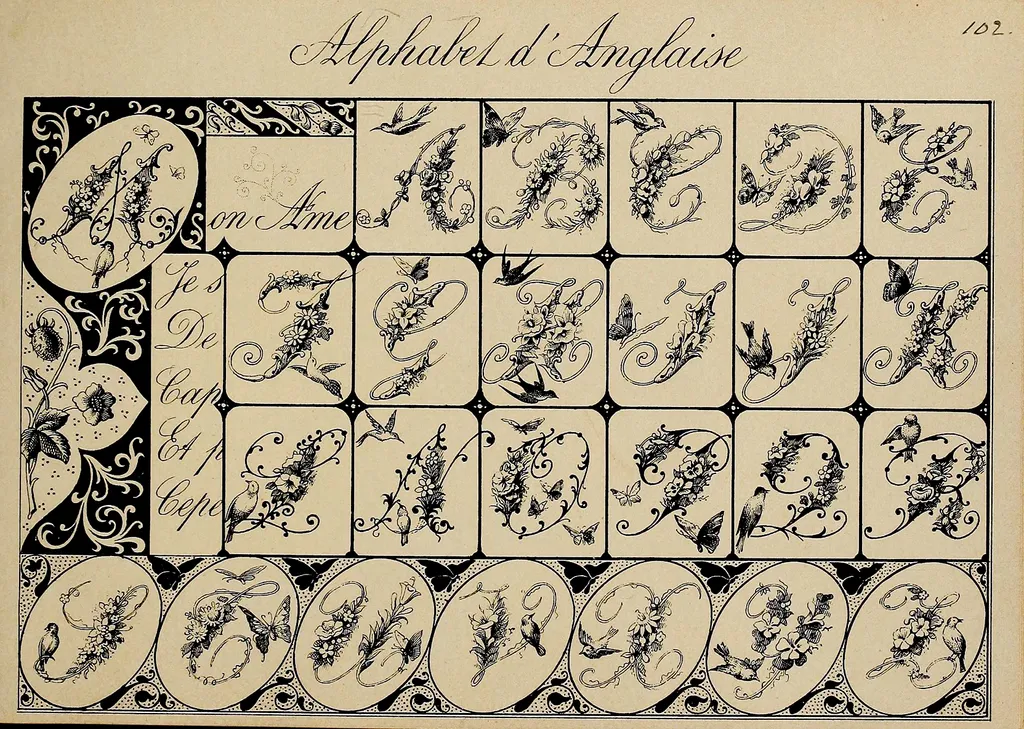 102.
Alphabet d'Anglaise
Mon Ame
A B C D E
Je s
De
Cap
Et p
Cepe
F G H I J K
L N O P Q R
S T U V X Y Z